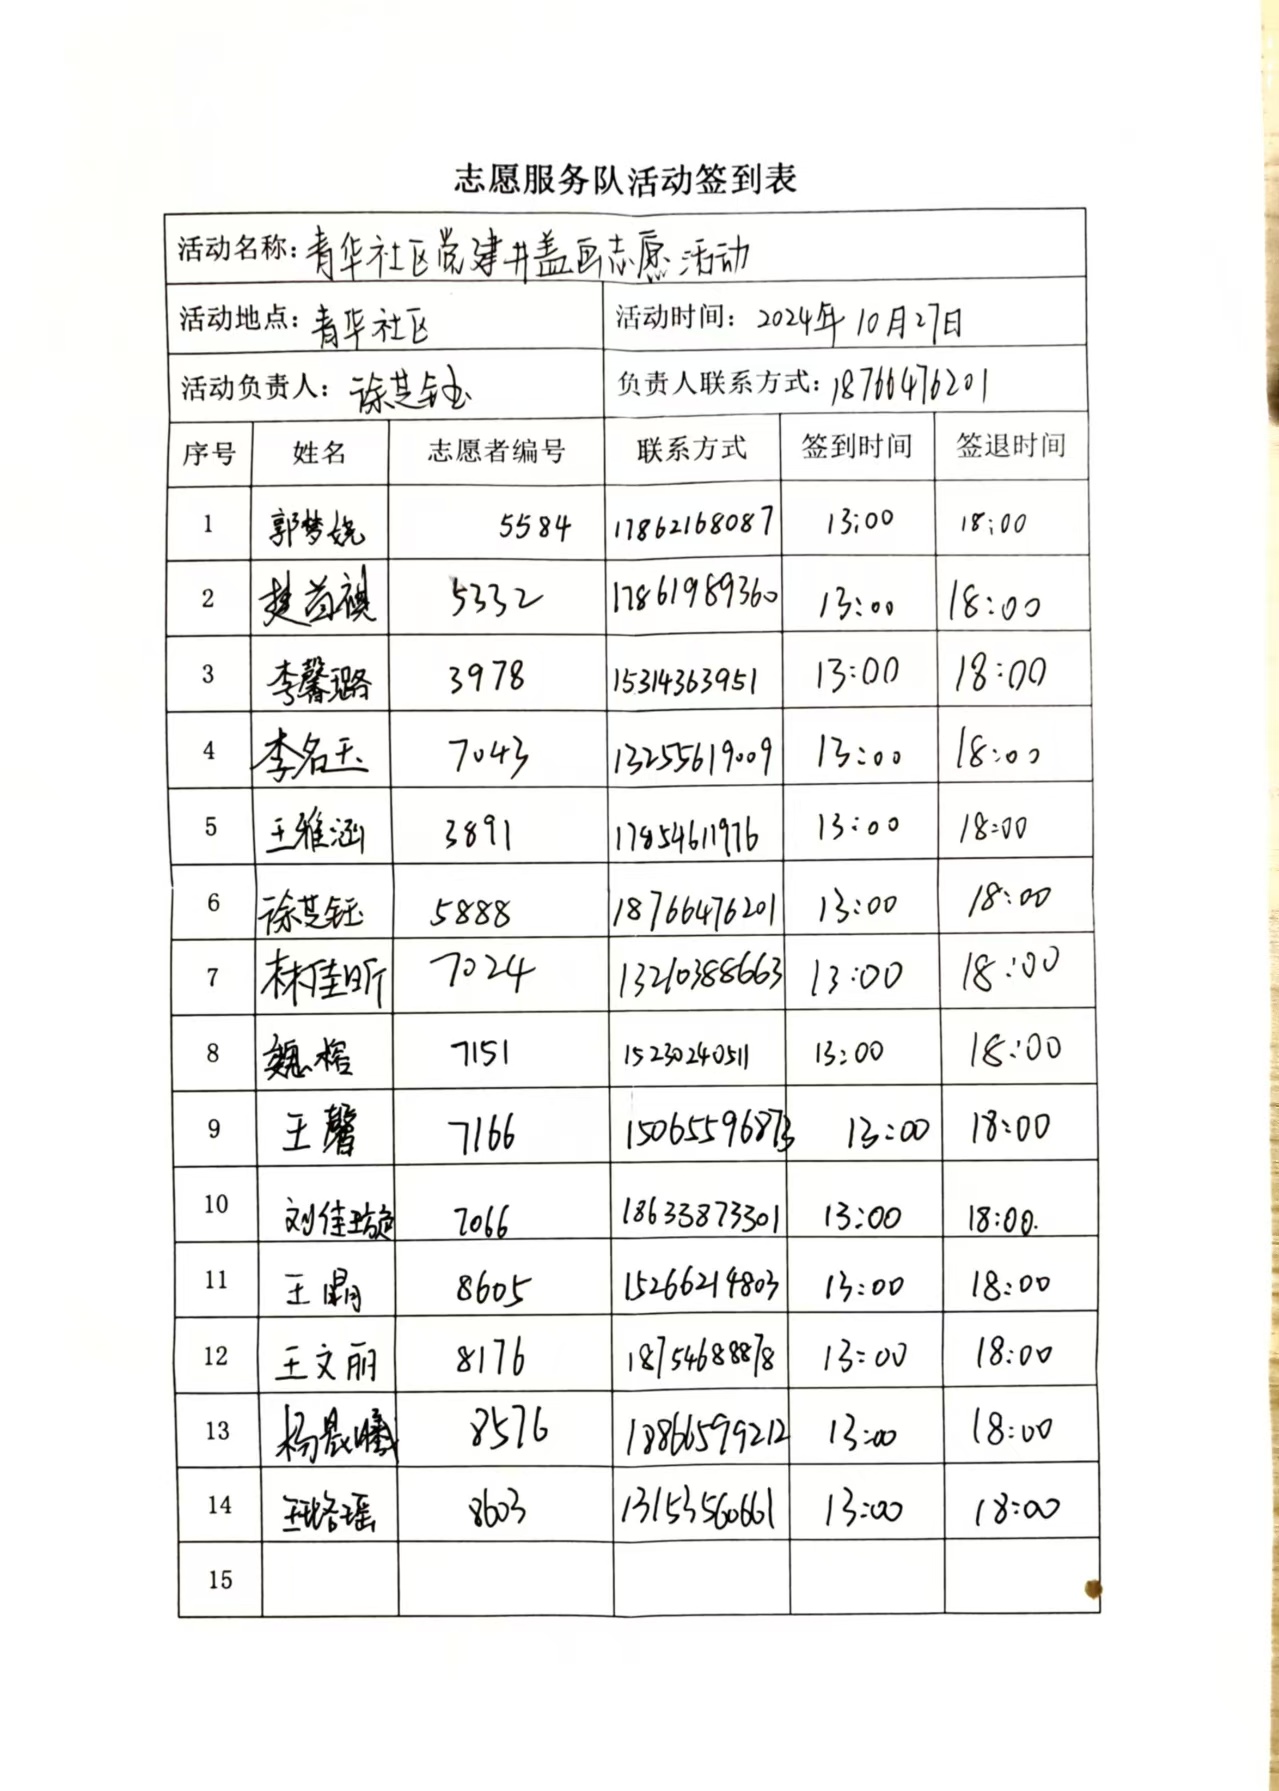 志愿服务队活动签到表
活动名称: 青华社区党建井盖画志愿活动
活动地点: 青华社区 活动时间: 2024年10月27日
活动负责人: 徐芝钰 负责人联系方式: 18766476201
序号 姓名 志愿者编号 联系方式 签到时间 签退时间
1 郭梦娆 5584 17862168087 13:00 18:00
2 5332 17861989360 13:00 18:00
3 李馨璐 3978 15314363951 13:00 18:00
4 李名玉 7043 13255619009 13:00 18:00
5 王雅涵 3891 17854611976 13:00 18:00
6 徐芝钰 5888 18766476201 13:00 18:00
7 林佳昕 7024 13210388663 13:00 18:00
8 魏榕 7151 15230240511 13:00 18:00
9 王馨 7166 15065596873 13:00 18:00
10 刘佳璇 7066 18633873301 13:00 18:00.
11 王 8605 15266214803 13:00 18:00
12 王文丽 8176 18754688878 13:00 18:00
13 杨晟曦 8576 18866599212 13:00 18:00
14 8603 13153560661 13:00 18:00
15